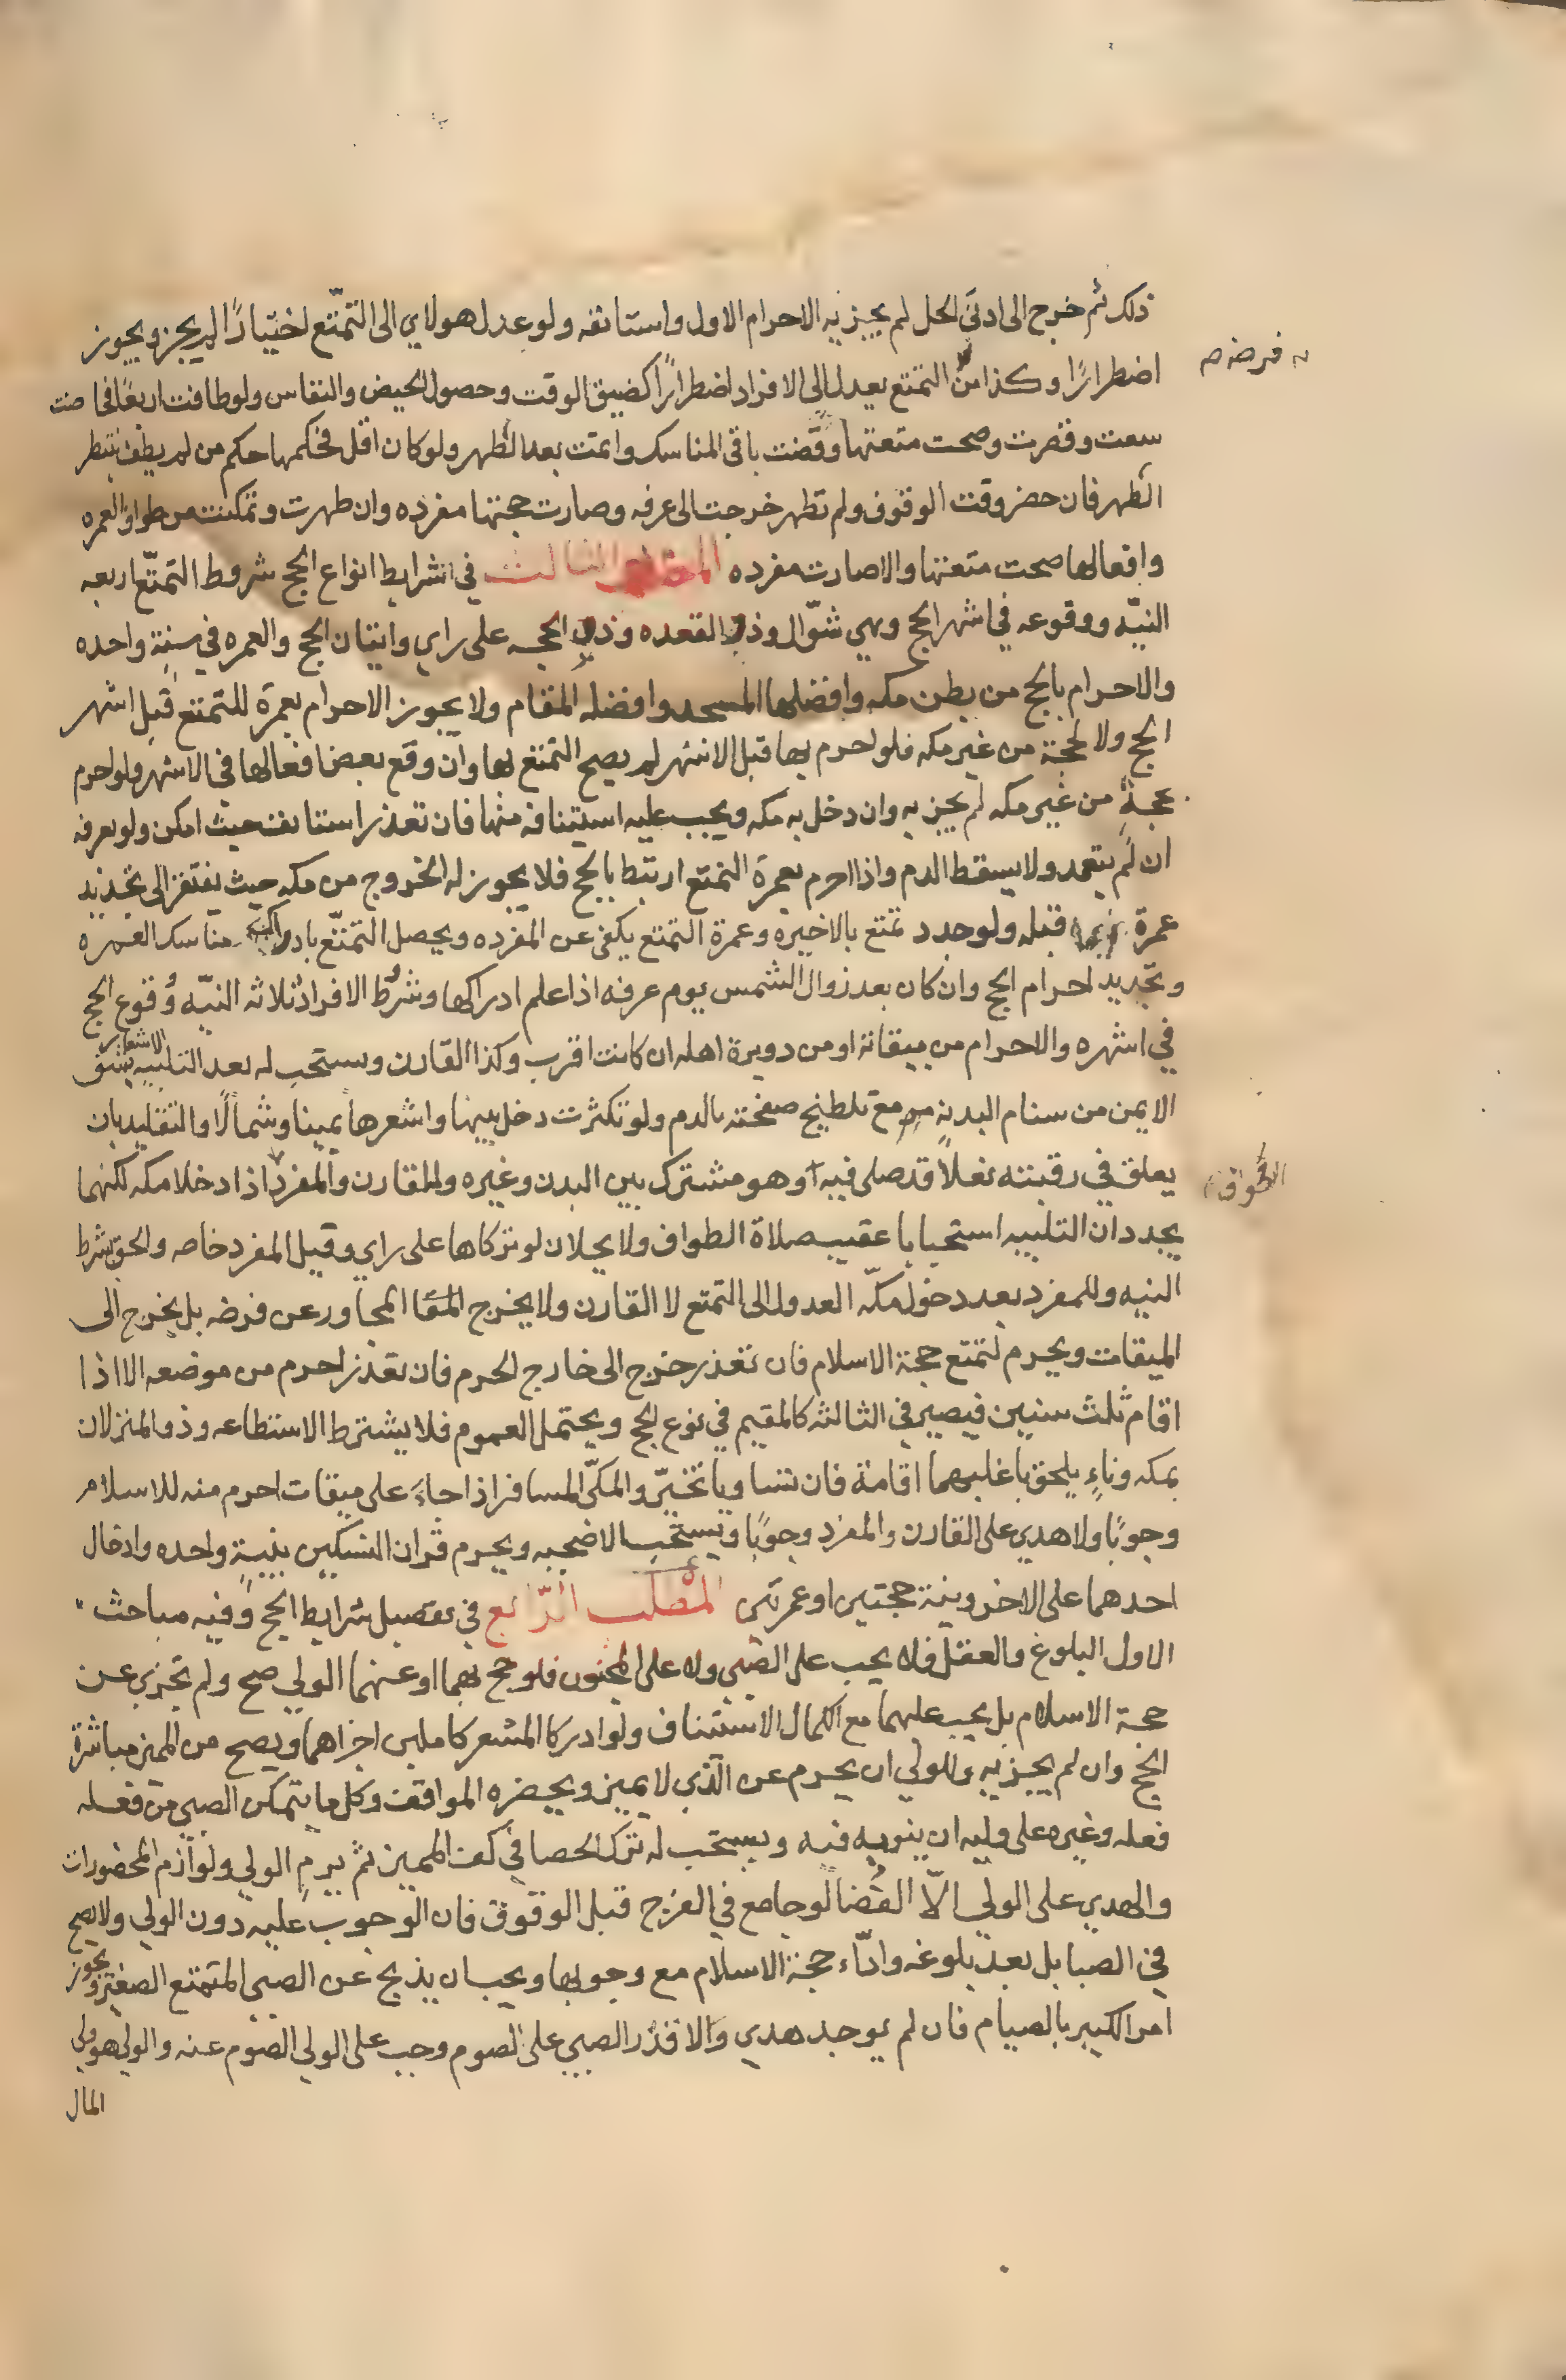 ذلك ثم خرج الى ادنى الحل لم يجز به الاحرام الاول واستانفه ولو عدل هولاي الى التمتّع اختيارًا لم يجز ويجوز
فرضه
اضطرارًا وكذا من التمتع يعدل الى الافراد اضطرارًا كضيق الوقت وحصول الحيض والنفاس ولو طافت اربعًا فحاضت
سعت وقصرت وصحت متعتها وقضت باقى المناسك واتمت بعد الطهر ولو كان اقل فحكمها حكم من لم يطف ينتظر
الطهر فان حضر وقت الوقوف ولم تطهر خرجت الى عرفه وصارت حجتها مفرده وان طهرت وتمكنت من طواف العمره
وافعالها صحت متعتها والا صارت مفرده المطلب الثالث في شرايط انواع الحج شروط التمتّع اربعه
النيّه ووقوعه في اشهر الحج وهي شوّال وذو القعده وذو الحجه على راي واتيان الحج والعمره في سنة واحده
والاحرام بالحج من بطن مكه وافضلها المسجد وافضله المقام ولا يجوز الاحرام بعمرة للتمتع قبل اشهر
الحج ولا لحجة من غير مكه فلو احرم بها قبل الاشهر لم يصح التمتع بها وان وقع بعض افعالها فى الاشهر ولو احرم
بحجةٍ من غير مكه لم يجز به وان دخل به مكه ويجب عليه استينافه منها فان تعذر استانف حيث امكن ولو بعرفه
ان لم يتعمد ولا يسقط الدم واذا احرم بعمرة التمتع ارتبط بالحج فلا يجوز له الخروج من مكه حيث يفتقر الى تجديد
عمرة قبله ولو جدد تمتع بالاخيره وعمرة التمتع يكفى عن المفرده ويحصل التمتّع بادراك مناسك العمره
وتجديد احرام الحج وان كان بعد زوال الشمس يوم عرفه اذا علم ادراكها وشرط الافراد ثلاثه النيّه وُقوع الحج
في اشهره والاحرام من ميقاته او من دويرة اهله ان كانت اقرب وكذا القارن ويستحب له بعد التلبيه الاشعار بشق
الايمن من سنام البدنه مع تلطيخ صفحته بالدم ولو تكثرت دخل بينها واشعرها يمينا وشمالًا والتقليد بان
يعلق في رقبته نعلاً قد صلى فيه وهو مشترك بين البدن وغيره وللقارن والمفرد اذا دخلا مكه لكنهما
الطواف
يجددان التلبيه استحبابا عقيب صلاة الطواف ولا يحلان لو تركاها على راي وقيل المفرد خاصه والحق بشرط
النيه وللمفرد بعد دخول مكّه العدول الى التمتع لا القارن ولا يخرج المجاور عن فرضه بل يخرج الى
الميقات ويحرم لتمتع حجة الاسلام فان تعذر خرج الى خارج الحرم فان تعذر احرم من موضعه الا اذا
اقام ثلث سنين فيصير فى الثالثه كالمقيم في نوع الحج ويحتمل العموم فلا يشترط الاستطاعه وذو المنزلان
بمكه وناءٍ يلحق باغلبهما اقامة فان تساويا تخيّر والمكّي المسافر اذا جاءَ على ميقات احرم منه للاسلام
وجوبًا ولا هدي على القارن والمفرد وجوبًا ويستحب الاضحيه ويحرم قران النسكين بنيةٍ واحده وادخال
احدهما على الاخر ونية حجتين او عمرتين المطلب الرّابع في تفصيل شرايط الحج وفيه مباحث
الاول البلوغ والعقل فلا يجب على الصبي ولا على المجنون فلو حج بهما او عنهما الولي صح ولم تجزي عن
حجة الاسلام بل يجب عليهما مع الكمال الاستيناف ولو ادركا المشعر كاملين اجزاهما ويصح من المميز مباشرة
الحج وان لم يجز به وللولي ان يحرم عن الّذي لا يميز ويحضره المواقف وكل ما يتمكن الصبي من فعله
فعله وغيره على وليه ان ينوبه فيه ويستحب له ترك الحصا في كف المميز ثم يرم الولي ولوازم المحضورات
والهدي على الولي الّا القضا لو جامع في الفرج قبل الوقوف فان الوجوب عليه دون الولي ولا يصح
في الصبا بل بعد بلوغه وادّاء حجة الاسلام مع وجوبها ويجب ان يذبح عن الصبي المتمتع الصغير ويجوز
امر الكبير بالصيام فان لم يوجد هدي والا قدر الصبي على الصوم وجب على الولي الصوم عنه والولي هو ولي
المال